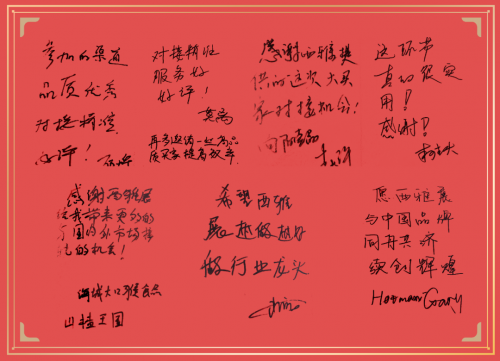 参加的渠道
品质优秀
对接精准
好评!
对接精准
服务好
好评!
再多邀请一些高品
质买家提高效率
感谢西雅展提
供的这次大买
家对接机会!
这环节
真的很实
用!
感谢!
感谢西雅展
给我带来更多的
了国内外市场接
的机会!
大口
食品
山楂王国
希望西雅
展越做越好
做行业龙头
愿西雅展
与中国品牌
同舟共济
续创辉煌